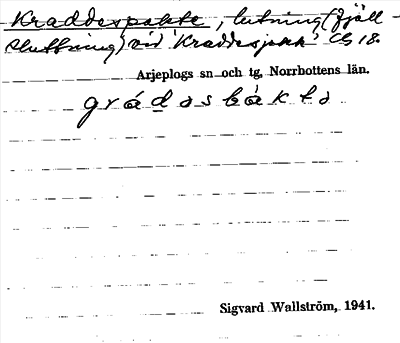 Kraddespakte, lutning (fjäll-
sluttning) vid Kraddesjokk C§ 18.
Arjeplogs sn och tg, Norrbottens län.
grádasbákta
Sigvard Wallström, 1941.